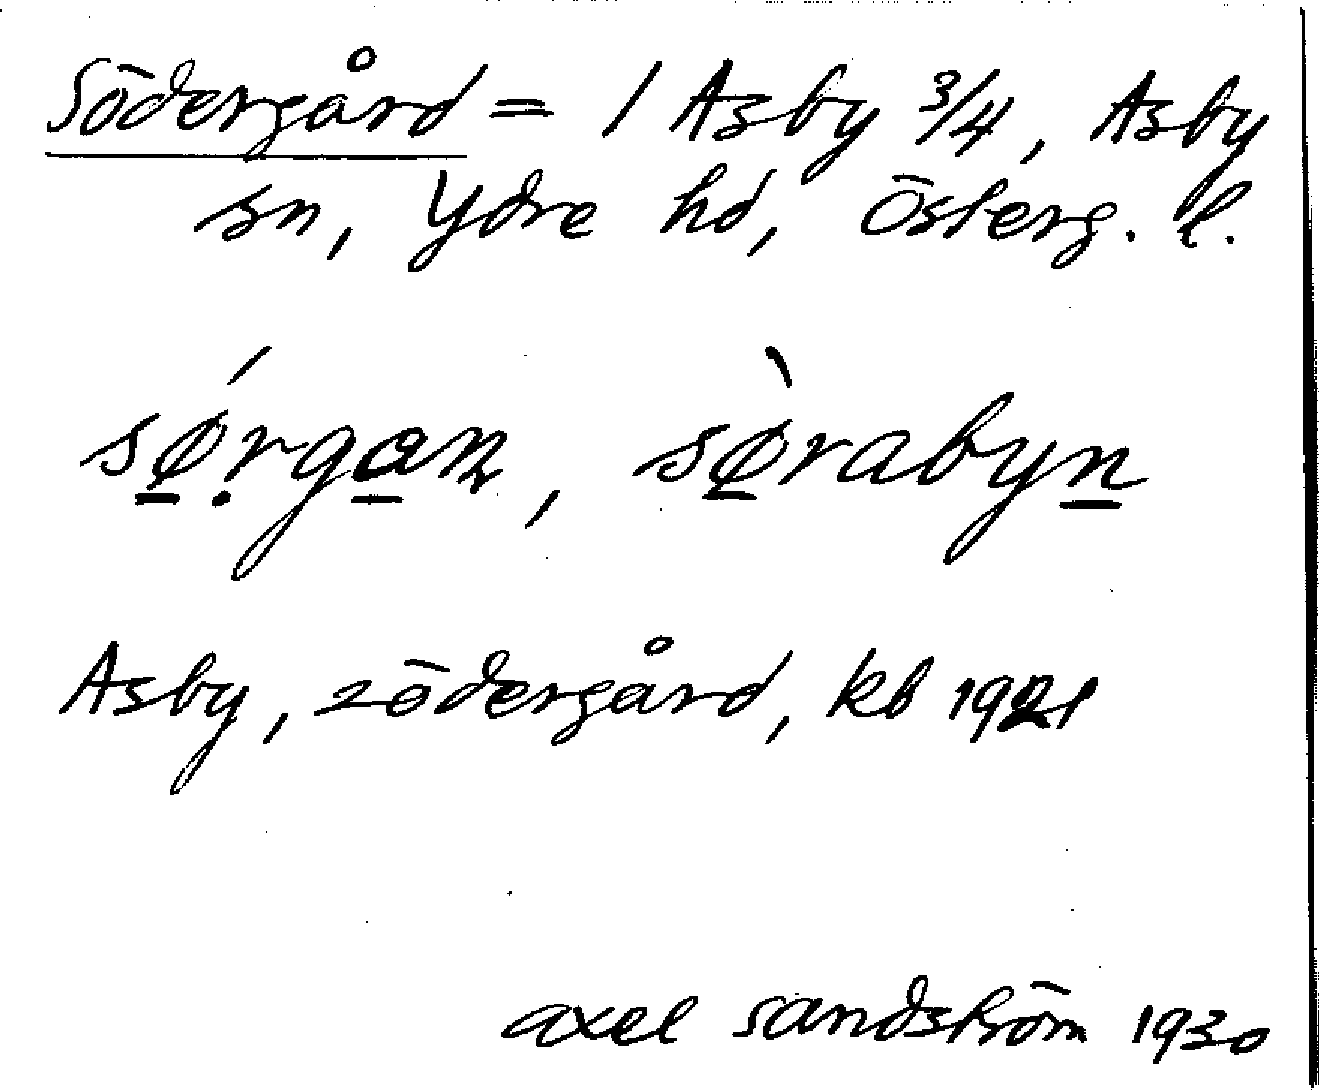 Södergård = 1 Asby 3/4, Asby
sn, Ydre hd, Österg. l.
sǿ̱ṛga̱n, sø̱̀rabyṉ
Asby, södergård, kb 1921
axel sandström 1930